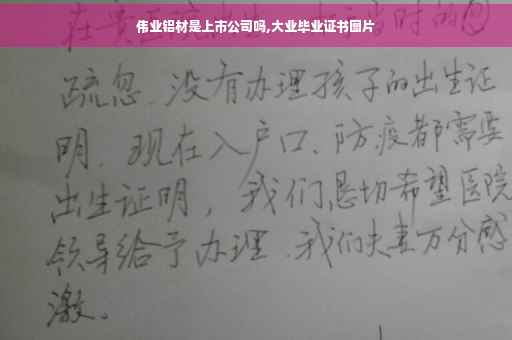 伟业铝材是上市公司吗,大业毕业证书图片
在贵医院出生 当时的
疏忽、没有办理孩子的出生证
明、现在入户口、防疫都需要
出生证明，我们恳切希望医院
领导给予办理、我们夫妻万分感
激。